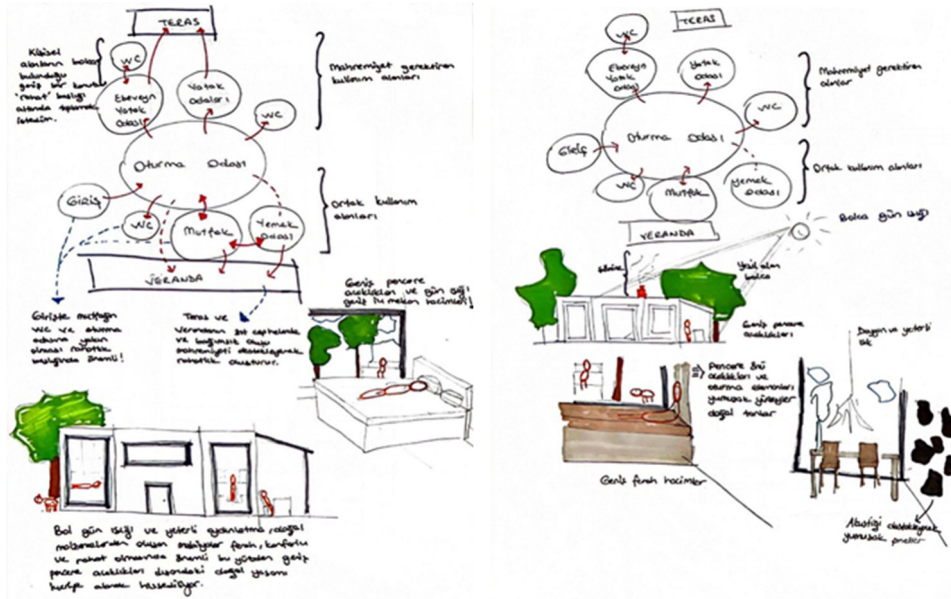 TERAS
Kişisel
alanların bolca
bulunduğu
geniş bir konutu
'rahat' başlığı
altında toplamak
istedim.
WC
Ebeveyn
Yatak
Odası
Yatak
odaları
WC
Mahremiyet gerektiren
kullanım alanları
Oturma Odası
Giriş
WC
Mutfak
Yemek
Odası
Ortak kullanım
alanları
VERANDA
Girişte mutfağın
WC ve oturma
odasına yakın
olması rahatlık
başlığında önemli!
Teras ve
verandanın üst cephelerde
ve bağımsız oluşu
mahremiyeti destekleyerek
rahatlık oluşturur.
Geniş pencere
açıklıkları ve gün ışığı
geniş iç mekan hacimleri!
Bol gün ışığı ve yeterli aydınlatma, doğal
malzemelerden oluşan mobilyalar ferah, konforlu
ve rahat olmasında önemli bu yüzden geniş
pencere açıklıkları dışındaki doğal yaşamı
içeriye alarak hissediliyor.
TERAS
WC
Ebeveyn
Yatak
odası
Yatak
Odası
WC
Mahremiyet gerektiren
alanlar
Oturma Odası
Giriş
WC
Mutfak
Yemek
Odası
Ortak kullanım alanları
VERANDA
Bolca gün ışığı
Şömine
Yeşil alan
bolca
Geniş pencere
açıklıkları
Pencere önü
açıklıkları ve
oturma elemanları
yumuşak yüzeyler
doğal tonlar
Geniş ferah hacimler
Daygın ve yeterli
ışık
Akustiği destekleyerek
yumuşak paneller